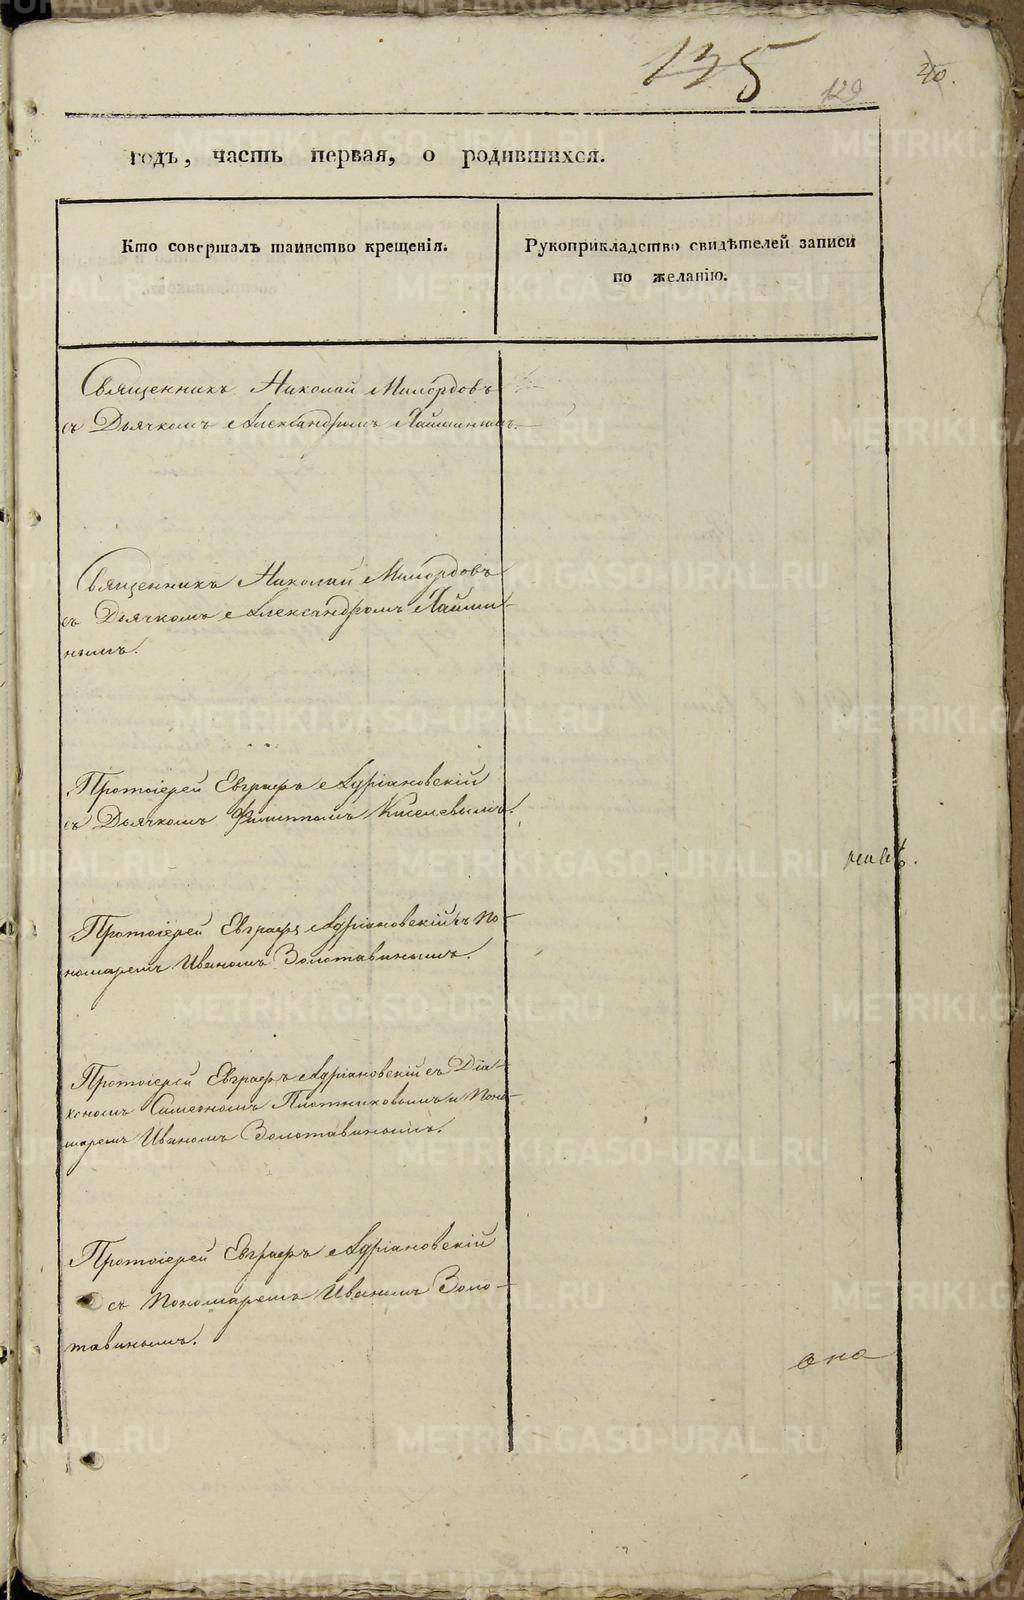 135
129
40.
годъ, часть первая, о родившихся.
Кто совершалъ таинство крещенія.
Рукоприкладство свидѣтелей записи
по желанію.
Священникъ Николай Милордовъ
съ Дьячкомъ Александромъ Хаймин
Священникъ Николай Милордовъ
съ Дьячкомъ Александромъ Хайми-
нымъ.
Протоіерей Евграфъ Адріановскій
съ Дьячкомъ Филиппомъ Киселевымъ.
Протоіерей Евграфъ Адріановскій съ По-
номаремъ Иваномъ Золотавинымъ.
Протоіерей Евграфъ Адріановскій съ Діа-
кономъ Симеономъ Плотниковымъ и Поно-
маремъ Иваномъ Золотавинымъ.
Протоіерей Евграфъ Адріановскій
съ Пономаремъ Иваномъ Золо-
тавинымъ.
она
METRIKI.GASO-URAL.RU